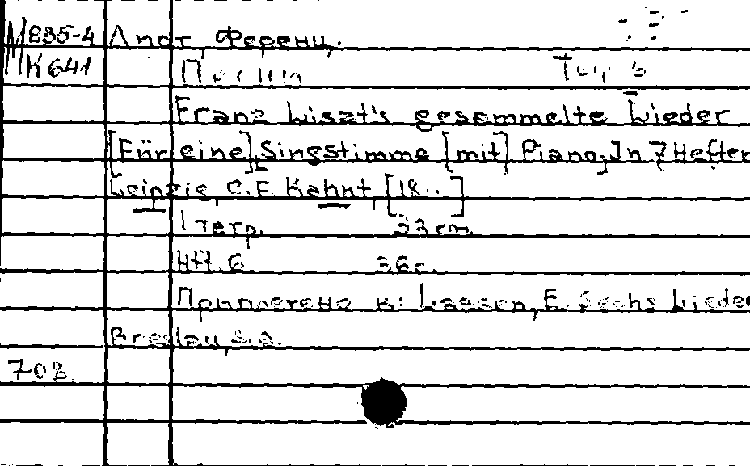 М235-4 Лист, Ференц.
МК641 Песни
Franz Liszt's gesammelte Lieder
[Für eine] Singstimme [mit] Piano, In 7 Hefter
Leipzig, C.F. Kahnt, [18..]
1 тетр. 33 cm.
Hft. 6. 36 с.
Приплетено к: Lassen, E. Sechs Lieder
Breslau, s.a.
703.